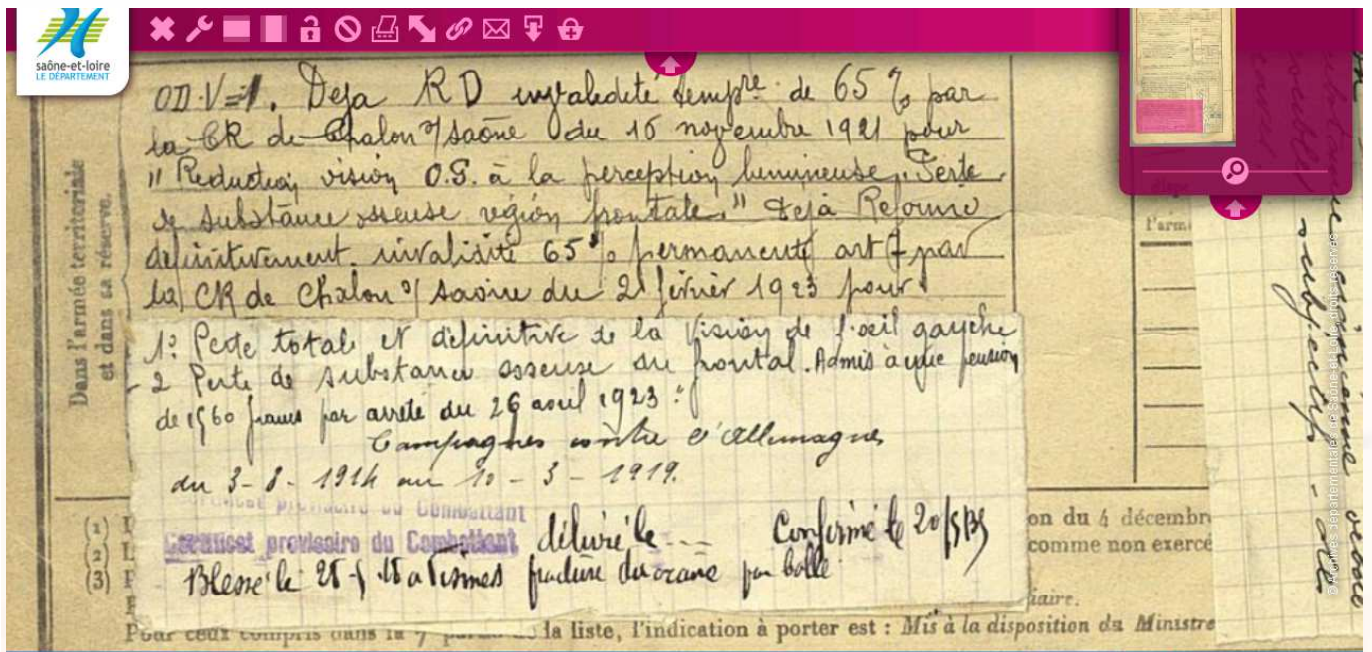 saône-et-loire
LE DÉPARTEMENT
Dans l'armée territoriale
et dans sa réserve.
Deja RD invalidité tempre de 65 % par
la CR de Chalon s/ saône du 16 novembre 1921 pour
" Reduction vision O.S. à la perception lumineuse, Perte
de substance osseuse région frontale." Dejà Reformé
définitivement. invalidité 65 % permanente art 7 par
la CR de Chalon s/ Saône du 2 février 1923 pour
1º Perte total et définitive de la vision de l'œil gauche
2 Perte de substance osseuse du frontal. Admis à une pension
de 1560 francs par arrêté du 26 avril 1923
Campagnes contre l'Allemagne
du 3-8-1914 au 10-3-1919.
provisoire du Combattant
provisoire du Combattant délivré le ... Confirmé le
Blessé le fracture du crane par balle
(1)
(2)
(3)
on du 4 décembr
comme non exercé
iaire.
Pour ceux compris dans la 7 la liste, l'indication à porter est : Mis à la disposition du Ministre
l'arm
subjectifs - des
© Archives départementales de Saône-et-Loire, droits réservés